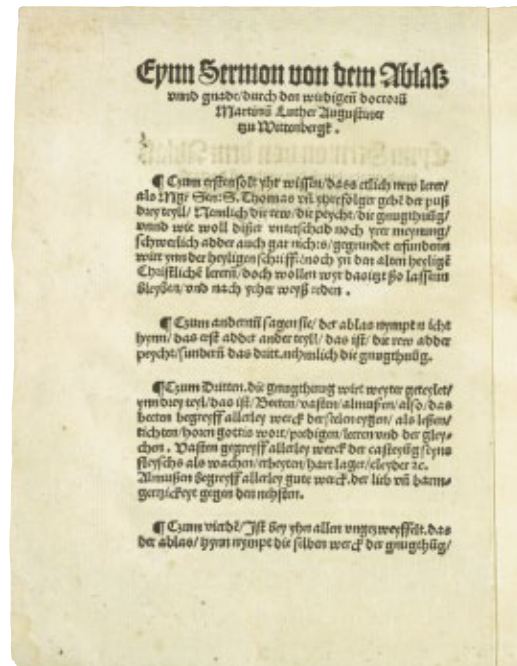 Eynn Sermon von dem Ablaß
vnnd gnade/ durch den wirdigen̄ doctorū
Martinū Luther Augustiner
tzu Wittenbergk.
¶ Czum ersten solt yhr wissen/ dass etlich new lerer/
als Mgr Sen: S. Thomas vn̄ yhre folger gebē der puß
drey teyll/ Nemlich die rew/ die peycht/ die gnugthuūg/
vnnd wie woll dißer vnterschid noch yrer meynung/
schwerlich adder auch gar nichts/ gegrundet erfundenn
wirt ynn der heyligen schrifft/ noch yn den alten heyligē
Christlichē lerern̄/ doch wollen wyr das itzt ßo lassenn
bleyben/ vnd nach yrher weyß reden.
¶ Czum andernn̄ sagen sie/ der ablas nympt nicht
hynn/ das erst adder ander teyll/ das ist/ die rew adder
peycht/ sundern̄ das dritt. nehmlich die gnugthuūg.
¶ Czum Dritten. die gnugthuung wirt weyter geteylet/
ynn drey teyl/ das ist/ Beeten/ vasten/ almußen/ also/ das
beeten begreyff allerley werck der selen eygen/ als leßen/
tichten/ horen gottis wort/ predigen/ leeren vnd der gley-
chen. Vasten begreyff allerley werck der casteyūg seyns
fleyschs als wachen/ erbeyten/ hart lager/ cleyder ⁊c.
Almußen begreyff allerley gute werck. der lieb vn̄ barm-
hertzickeyt gegen den nehsten.
¶ Czum vierdē/ Ist bey yhn allen vngezweyffelt. das
der ablas/ hynn nympt die selben werck der gnugthuūg/